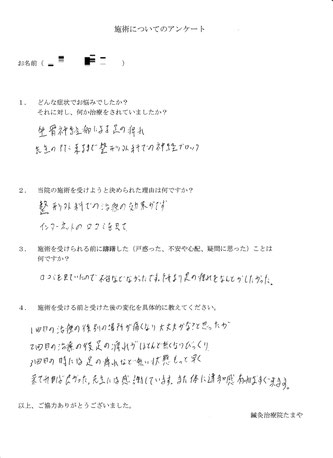 施術についてのアンケート
お名前（　　　）
１．　どんな症状でお悩みでしたか？
それに対し、何か治療をされていましたか？
坐骨神経痛による足の痺れ
先生の所に来るまで整形外科での神経ブロック
２．　当院の施術を受けようと決められた理由は何ですか？
整形外科での治療の効果がでず
インターネットの口コミを見て
３．　施術を受けられる前に躊躇した（戸惑った、不安や心配、疑問に思った）ことは
何ですか？
口コミを見ていたので不安などなかったです。それより足の痺れをなんとかしたかった。
４．　施術を受ける前と受けた後の変化を具体的に教えてください。
1回目の治療の後別の場所が痛くなり大丈夫かな？と思ったが
2回目の治療の後足の痺れがほとんど無くなりびっくり
3回目の時には足の痺れなど無い状態
来て
先生には感謝しています。また体に違和感
以上、ご協力ありがとうございました。
鍼灸治療院たまや